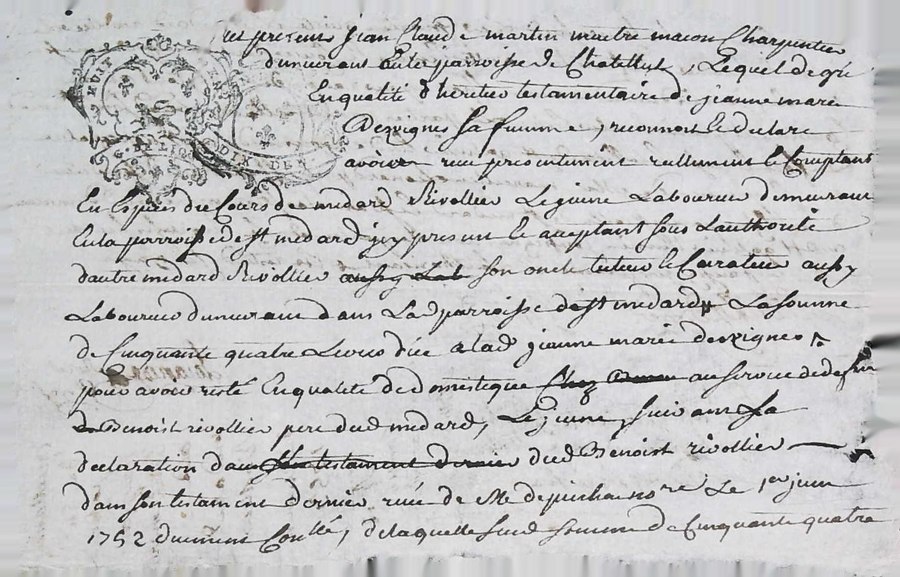 present Jean Claude martin maitre macon Charpentier
demeurant en la parroisse de Chatellus, Lequel de gré
En qualité d'heritier testamentaire de jeanne marie
Devignes sa femme, reconnoit & declare
avoir receu presentement reellement & Comptant
En Especes du Cours de medard Rivollier Le jeune Laboureur demeurant
En la parroisse de st medard icy present & acceptant sous L'authorité
d'autre medard Rivollier aussy Lab son oncle tuteur & Curateur aussy
Laboureur demeurant dans Lad parroisse de st medard La somme
de Cinquante quatre Livres düe a lad jeanne marie devignes
pour avoir resté En qualité de domestique Chez Benoit au service de deffunt
Benoist rivollier pere dud medard, Le jeune, suivant La
declaration dans son testament dernier dud Benoist rivollier
dans son testament dernier receu de Me depuichanore Le 1er juin
1752 duement Conllé, de laquelle susd somme de Cinquante quatre
HUIT DEN
G. DE LION
DIX DEN